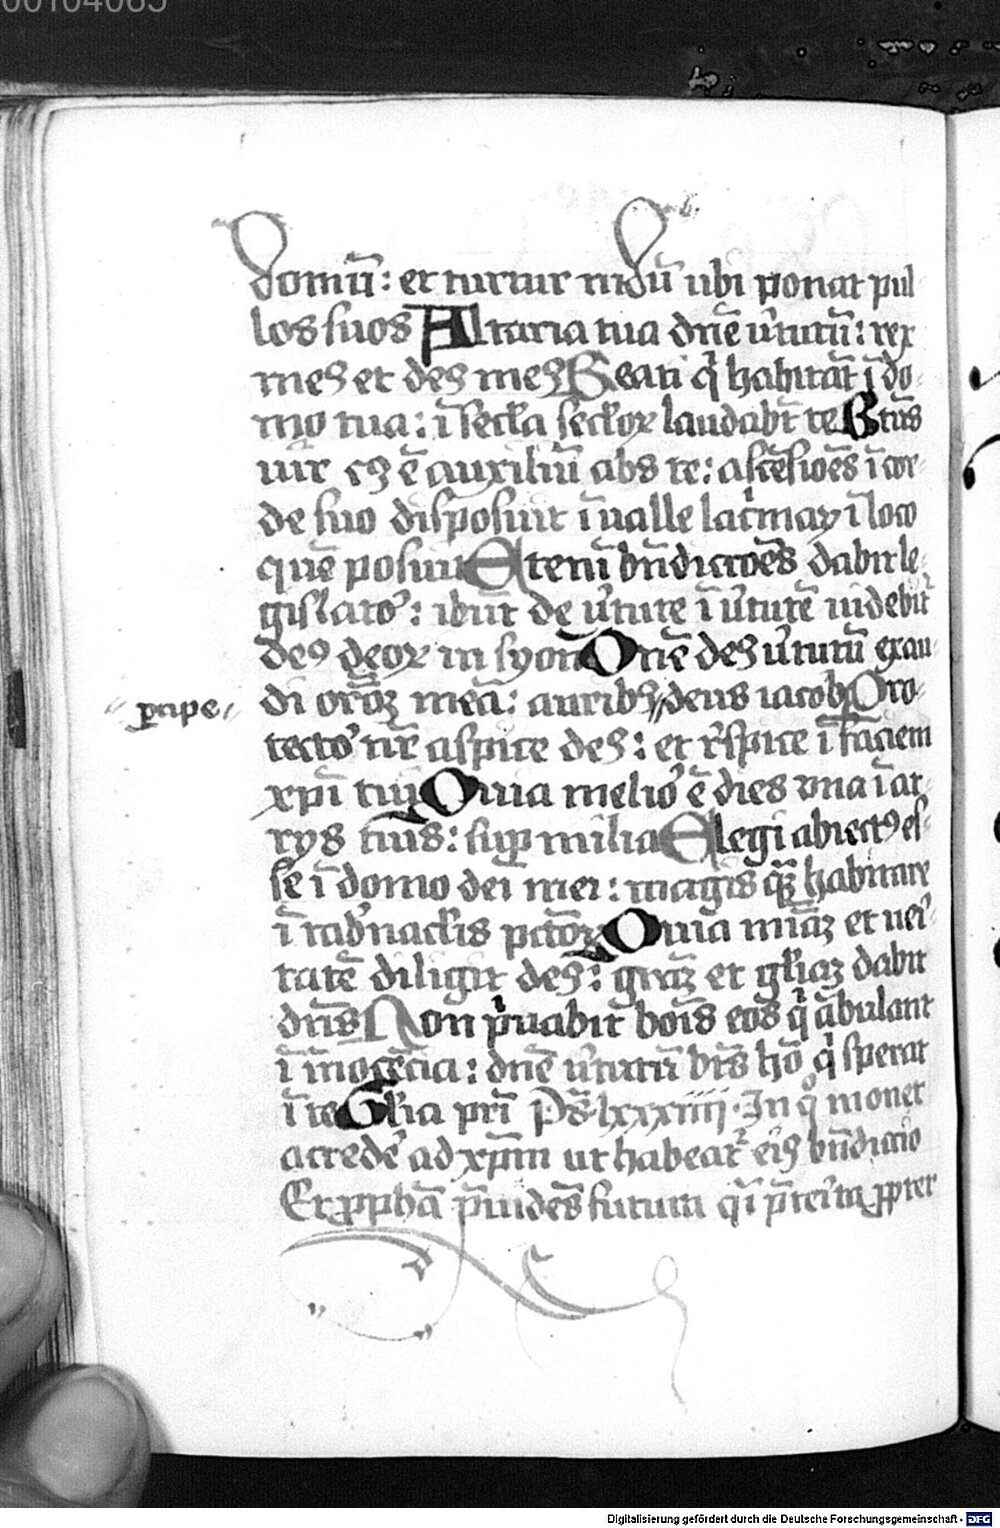 00104065
domū : et turtur nidū ubi ponat pul
los suos Altaria tua dn̄e v̓tutū : rex
meꝰ et deꝰ meꝰ Beati q̓ habitāt ī do
mo tua : ī sec̄la sec̄loꝝ laudabt̄ te Bt̄us
uir cꝰ ē auxiliū abs te : ascēsiōes ī cor
de suo disposuit ī ualle lac̓maꝝ ī loco
quē posuit Etenī bn̄dictiōes dabit le
gislato᷑ : ibūt de v̓tute ī v̓tutē uidebit᷑
deꝰ deoꝝ in syon Dn̄e deꝰ v̓tutū exau
di or̄oꝫ meā : auribꝰ deus iacob Pro
ꝑcipe
tecto᷑ nr̄ aspice deꝰ : et r̓spice ī faciem
xp̄i tui Quia melio᷑ ē dies una ī at
rijs tuis : suꝑ milia Elegi abiectꝰ es
se ī domo dei mei : magis qꝫ̄ habitare
ī tab̓nac̄lis pc̄toꝝ Quia mīaꝫ et ueri
tatē diligit deꝰ : gr̄aꝫ et gl̄iaꝫ dabit
dn̄s Non p̓uabit bo̅is eos q̓ ābulant
ī īnocēcia : dn̄e v̓tutū bt̄s hō q̓ sperat
ī te Gl̄ia pr̄i Ps̄ lxxxiiij · In qͦ monet
accede᷑ ad xp̄m ut habeat᷑ eiꝰ bn̄dictio
Et ꝓph̄a p̄uidēs futura q̄i p̄terita ꝓpter
Digitalisierung gefördert durch die Deutsche Forschungsgemeinschaft - DFG